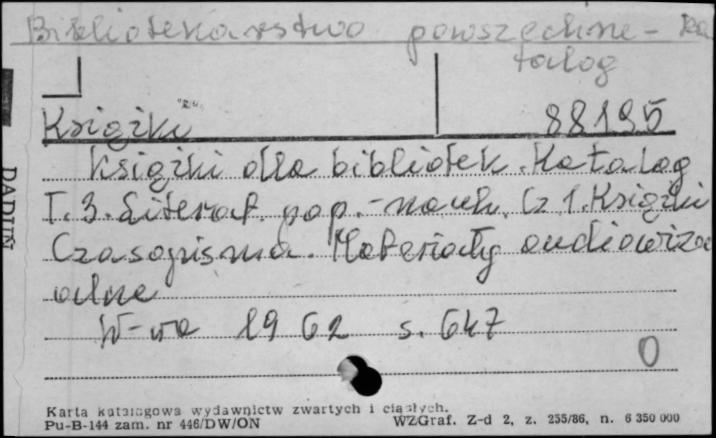 Bibliotekarstwo powszechne - Ka
talog
Książki 88195
Książki dla bibliotek. Katalog
T. 3. Literat. pop.-nauk. Cz 1. Książki
Czasopisma. Materiały audiowizu
alne
W-wa 1962 s. 647
0
DADUŃ
Karta katalogowa wydawnictw zwartych i ciągłych.
Pu-B-144 zam. nr 446/DW/ON WZGraf. Z-d 2, z. 255/86, n. 6 350 000